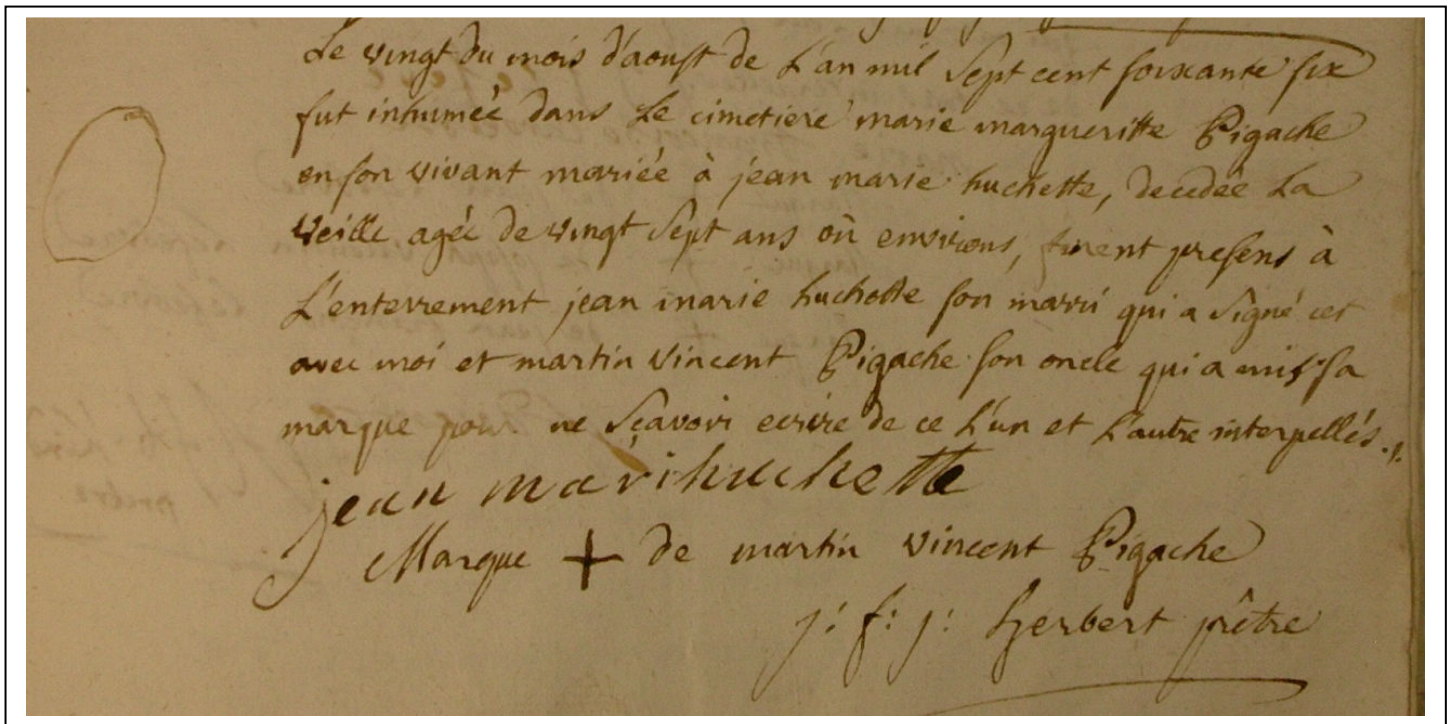 Le vingt du mois d'aoust de L'an mil Sept cent soixante six
fut inhumée dans Le cimetiere marie margueritte Pigache
en son vivant mariée à jean marie huchette, decedée La
veille agée de vingt Sept ans où environs, furent presens à
L'enterrement jean marie huchette son marri qui a signé cet
avec moi et martin vincent Pigache son oncle qui a mis sa
marque pour ne Sçavoir ecrire de ce L'un et L'autre interpellés.
jean mari huchette
Marque + de martin vincent Pigache
j: f: j: herbert prêtre